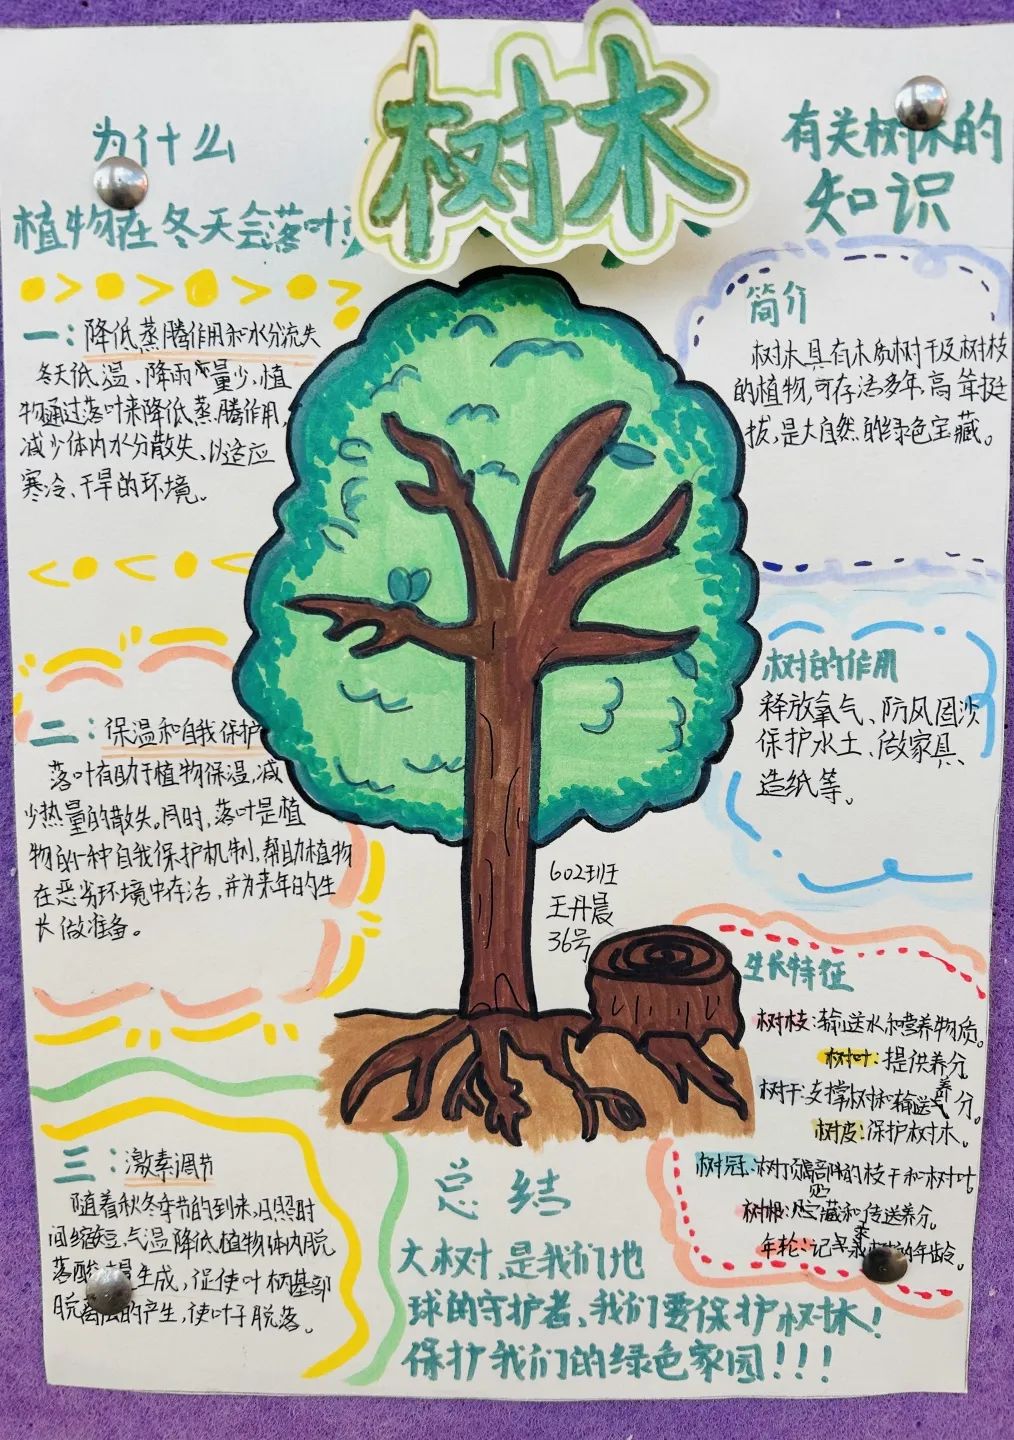 树木
为什么
植物在冬天会落叶
一：降低蒸腾作用和水分流失
冬天低温、降雨量少，植
物通过落叶来降低蒸腾作用，
减少体内水分散失、以适应
寒冷、干旱的环境。
二：保温和自我保护
落叶有助于植物保温，减
少热量的散失。同时，落叶是植
物的一种自我保护机制，帮助植物
在恶劣环境中存活，并为来年的生
长做准备。
三：激素调节
随着秋冬季节的到来，日照时
间缩短，气温降低，植物体内脱
落酸 量生成，促使叶柄基部
脱离层的产生，使叶子脱落。
有关树木的
知识
简介
树木具有木质树干及树枝
的植物，可存活多年，高耸挺
拔，是大自然的绿色宝藏。
树的作用
释放氧气、防风固沙
保护水土、做家具、
造纸等。
602班
王丹晨
36号
生长特征
树枝：输送水和营养物质。
树叶：提供养分。
树干：支撑树和输送养分。
树皮：保护树木。
树冠：树顶部的枝干和树叶
树根：贮藏和传送养分。
年轮：记录树的年龄。
总结
大树，是我们地
球的守护者、我们要保护树木！
保护我们的绿色家园！！！